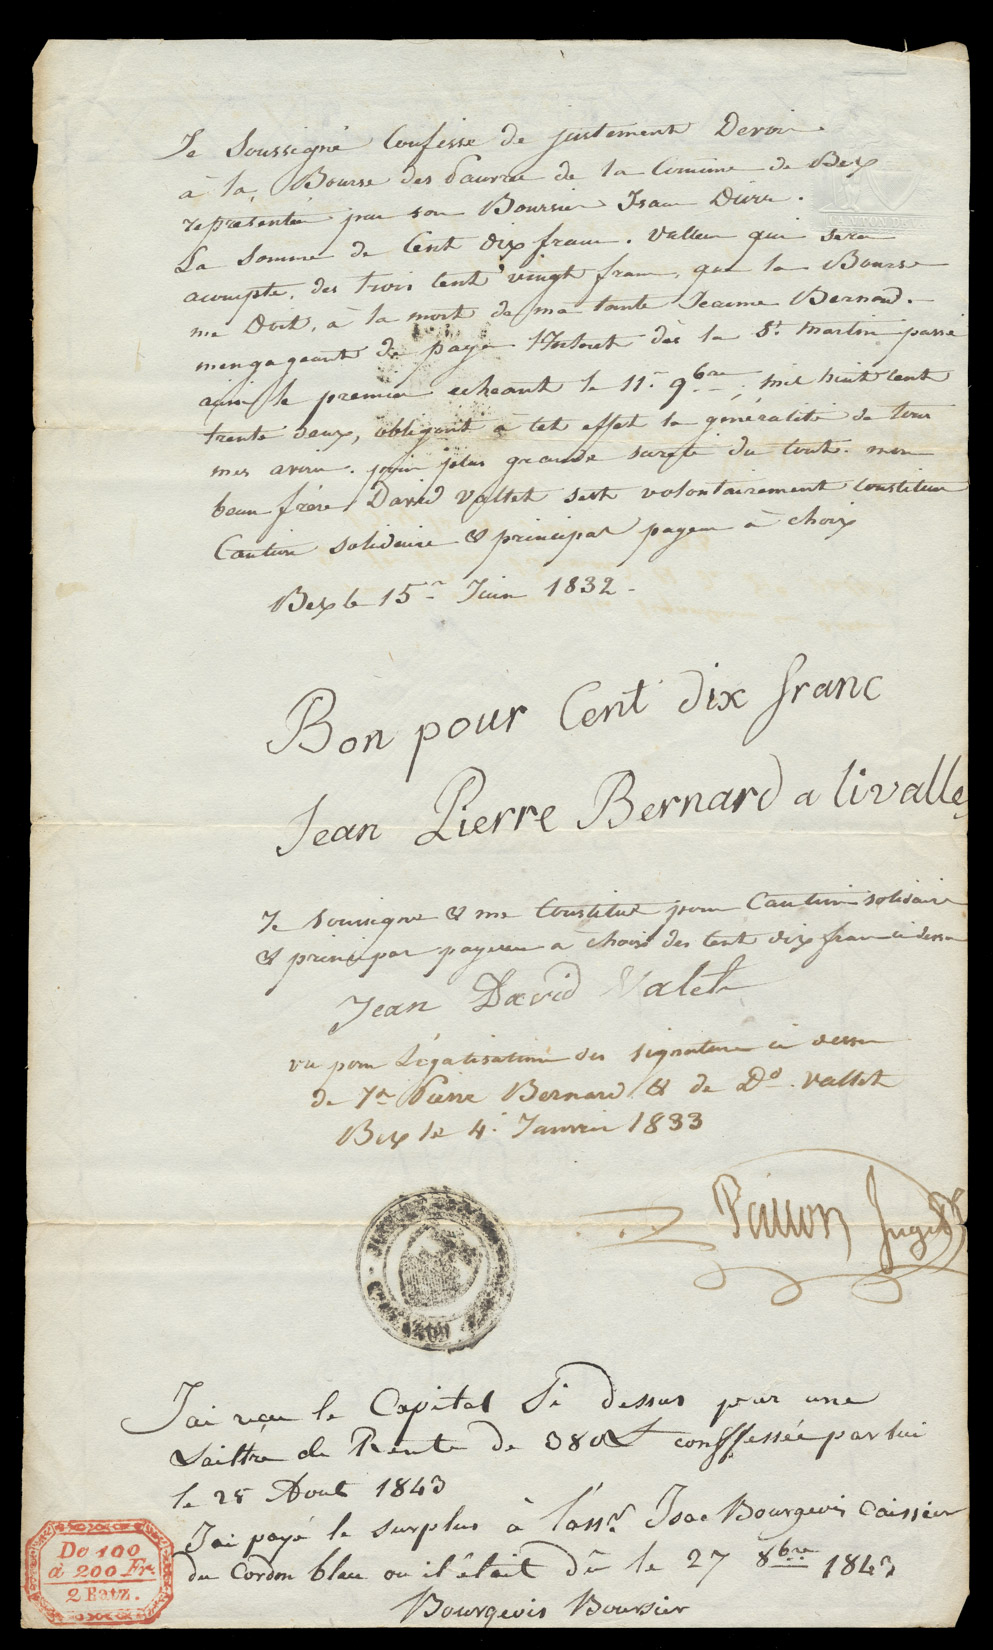 Je Soussigné Confesse de justement Devoir
à la Bourse des Pauvre de la Comune de Bex
representée par son Boursier Isaac
La Somme de Cent dix franc. Valleur qui sera
acompte, des trois Cent vingt franc, que la Bourse
me Doit, à la mort de ma tante Jeanne Bernard.
mengageant de payer l'Interet dès la St. Martin passé
ainsi le premier echeant le 11.e 9bre mil huit cent
trente deux, obligeant à cet effet la généralité de tous
mes avoir. pour plus grande sureté du tout. mon
beau frère David Vallet sest volontairement constitué
Caution solidaire & principal payeur à choix
Bex le 15.e Juin 1832.
Bon pour Cent dix franc
Jean Pierre Bernard a livalley
Je soussigne & me Constitue pour Caution solidaire
& principal payeur a choix des cent dix franc ci dessu
Jean David Valet
vu pour Légalisation des signature ci dessu
de Jn Pierre Bernard & de Dd. Vallet
Bex le 4. Janvier 1833
Juge
Jai reçu le Capital Si dessus pour une
Laittre de Rente de 380 L conffessée par lui
le 25 Aout 1843
Jai payé le surplus à l'assr. Isac Bourgeois Caissier
du Cordon bleu ou il était Dû le 27 8bre 1843
Bourgeois Boursier
De 100
à 200 Fr.
2 Batz.
CANTON